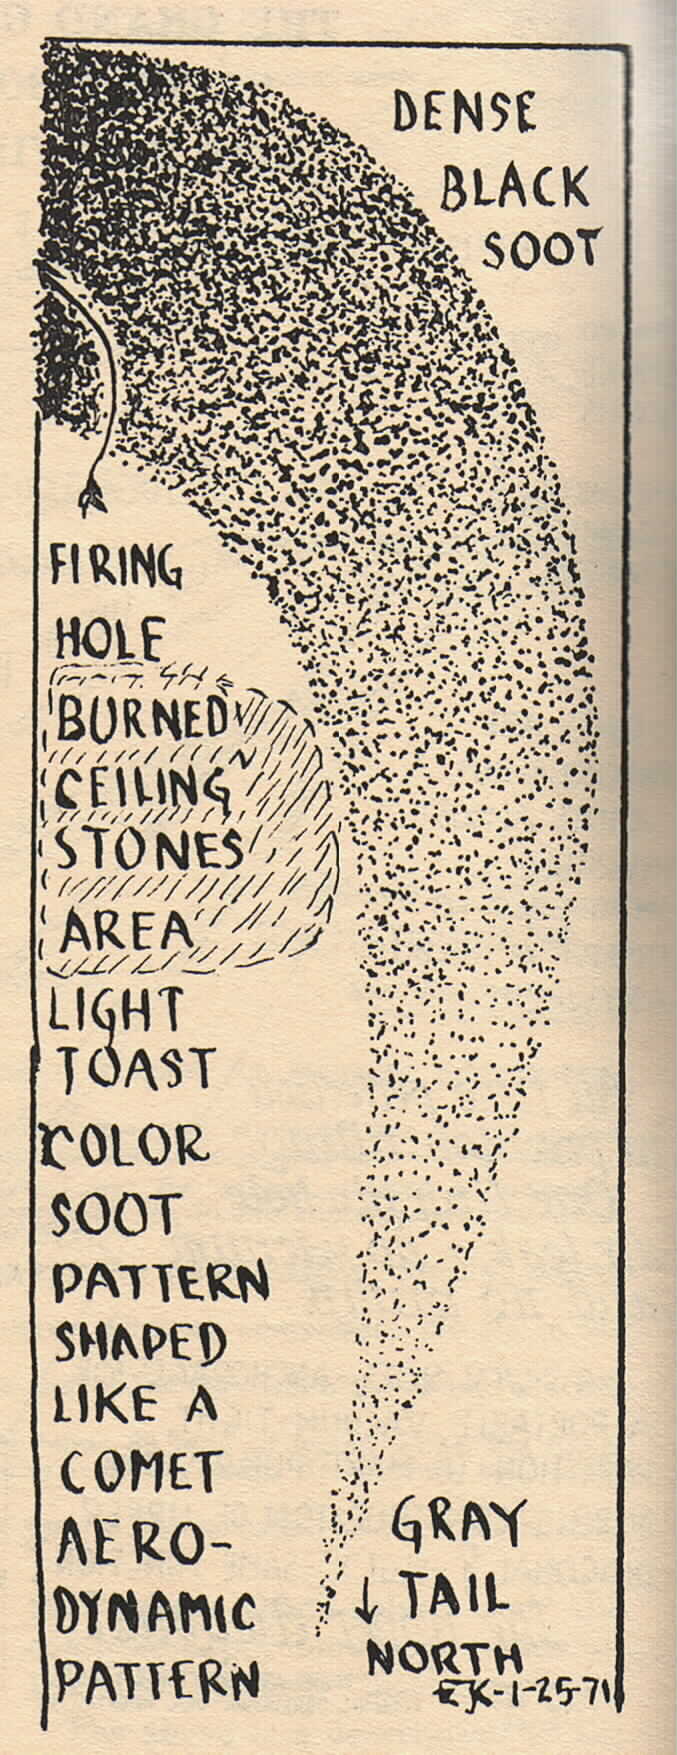 DENSE
BLACK
SOOT
FIRING
HOLE
BURNED
CEILING
STONES
AREA
LIGHT
TOAST
COLOR
SOOT
PATTERN
SHAPED
LIKE A
COMET
AERO-
DYNAMIC
PATTERN
GRAY
↓ TAIL
NORTH
EK-1-25-71